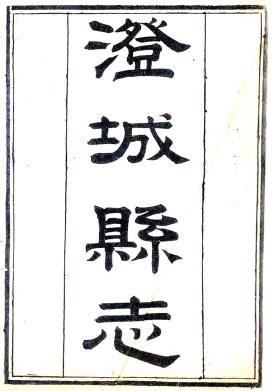 澄城縣志